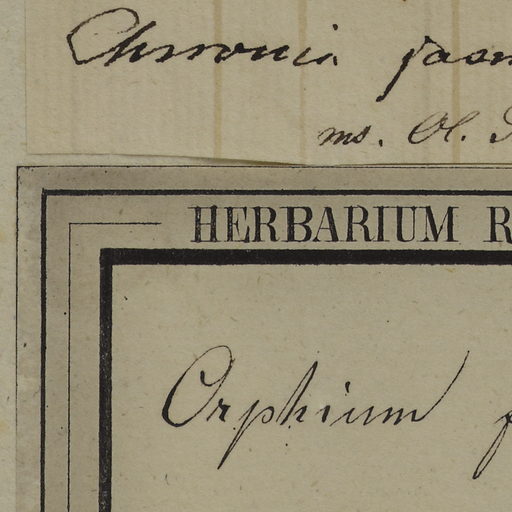 Chironia jasm
ms. Ol. S
HERBARIUM R
Orphium f